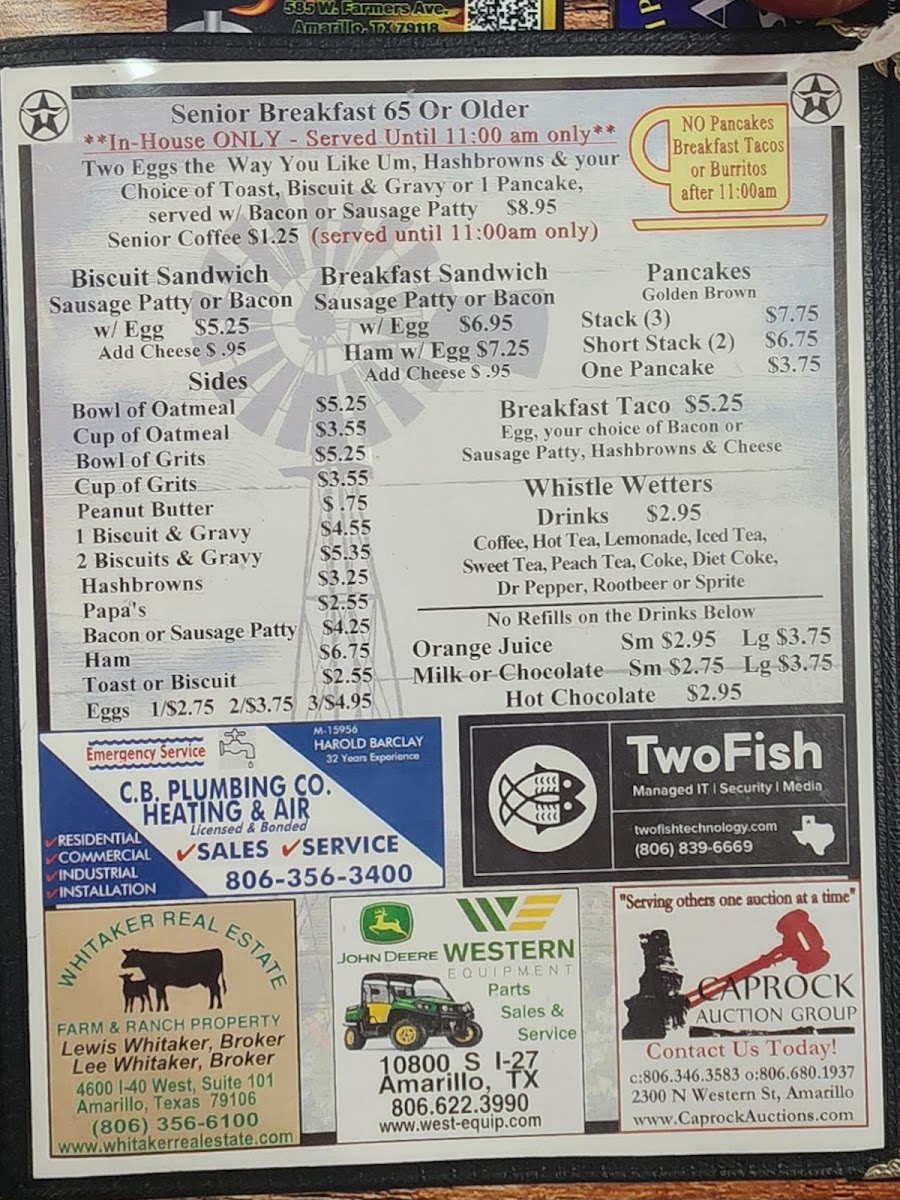 585 W. Farmers Ave.
Amarillo, TX 79118
Senior Breakfast 65 Or Older
**In-House ONLY - Served Until 11:00 am only**
Two Eggs the Way You Like Um, Hashbrowns & your
Choice of Toast, Biscuit & Gravy or 1 Pancake,
served w/ Bacon or Sausage Patty $8.95
Senior Coffee $1.25 (served until 11:00am only)
NO Pancakes
Breakfast Tacos
or Burritos
after 11:00am
Biscuit Sandwich
Sausage Patty or Bacon
w/ Egg $5.25
Add Cheese $ .95
Breakfast Sandwich
Sausage Patty or Bacon
w/ Egg $6.95
Ham w/ Egg $7.25
Add Cheese $ .95
Pancakes
Golden Brown
Stack (3) $7.75
Short Stack (2) $6.75
One Pancake $3.75
Sides
Bowl of Oatmeal $5.25
Cup of Oatmeal $3.55
Bowl of Grits $5.25
Cup of Grits $3.55
Peanut Butter $ .75
1 Biscuit & Gravy $4.55
2 Biscuits & Gravy $5.35
Hashbrowns $3.25
Papa's $2.55
Bacon or Sausage Patty $4.25
Ham $6.75
Toast or Biscuit $2.55
Eggs 1/$2.75 2/$3.75 3/$4.95
Breakfast Taco $5.25
Egg, your choice of Bacon or
Sausage Patty, Hashbrowns & Cheese
Whistle Wetters
Drinks $2.95
Coffee, Hot Tea, Lemonade, Iced Tea,
Sweet Tea, Peach Tea, Coke, Diet Coke,
Dr Pepper, Rootbeer or Sprite
No Refills on the Drinks Below
Orange Juice Sm $2.95 Lg $3.75
Milk or Chocolate Sm $2.75 Lg $3.75
Hot Chocolate $2.95
Emergency Service
M-15956
HAROLD BARCLAY
32 Years Experience
C.B. PLUMBING CO.
HEATING & AIR
Licensed & Bonded
RESIDENTIAL
COMMERCIAL
INDUSTRIAL
INSTALLATION
SALES SERVICE
806-356-3400
TwoFish
Managed IT | Security | Media
twofishtechnology.com
(806) 839-6669
WHITAKER REAL ESTATE
FARM & RANCH PROPERTY
Lewis Whitaker, Broker
Lee Whitaker, Broker
4600 I-40 West, Suite 101
Amarillo, Texas 79106
(806) 356-6100
www.whitakerrealestate.com
JOHN DEERE
WE
WESTERN
EQUIPMENT
Parts
Sales &
Service
10800 S I-27
Amarillo, TX
806.622.3990
www.west-equip.com
"Serving others one auction at a time"
CAPROCK
AUCTION GROUP
Contact Us Today!
c:806.346.3583 o:806.680.1937
2300 N Western St, Amarillo
www.CaprockAuctions.com